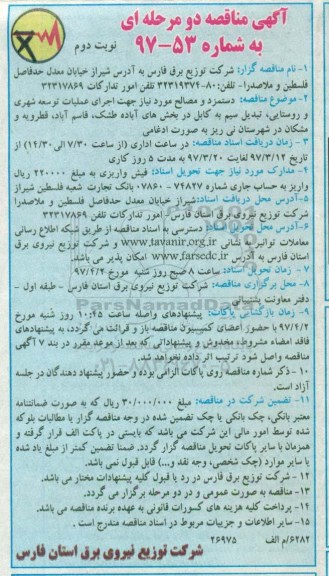 آگهی مناقصه دو مرحله ای
به شماره ۵۳-۹۷
نوبت دوم
۱- نام مناقصه گزار: شرکت توزیع برق فارس به آدرس شیراز خیابان معدل حدفاصل
فلسطین و ملاصدرا- تلفن: ۸۰-۳۲۳۱۹۳۷۴ تلفن امور تدارکات ۳۲۳۱۷۸۶۹
۲- موضوع مناقصه: دستمزد و مصالح مورد نیاز جهت اجرای عملیات توسعه شهری
و روستایی، تبدیل سیم به کابل در بخش های آباده طشک، قاسم آباد، قطرویه و
مشکان در شهرستان نی ریز به صورت ادغامی
۳- زمان دریافت اسناد مناقصه: در ساعت اداری (از ساعت ۷/۳۰ الی ۱۴/۳۰) از
تاریخ ۹۷/۳/۱۲ لغایت ۹۷/۳/۲۰ به مدت ۵ روز کاری
۴- مدارک مورد نیاز جهت تحویل اسناد: فیش واریزی به مبلغ ۲۲۰۰۰۰ ریال
واریز به حساب جاری شماره ۷۴۸۲۷-۰۷۸۶۰ بانک تجارت شعبه فلسطین شیراز
۵-آدرس محل دریافت اسناد: شیراز خیابان معدل حدفاصل فلسطین و ملاصدرا
شرکت توزیع نیروی برق استان فارس - امور تدارکات تلفن ۳۲۳۱۷۸۶۹
۶-آدرس محل تحویل اسناد: دسترسی به اسناد مناقصه از طریق شبکه اطلاع رسانی
معاملات توانیر به نشانی www.tavanir.org.ir و شرکت توزیع نیروی برق
استان فارس به آدرس www.farsedc.ir امکان پذیر می باشد.
۷- زمان تحویل اسناد: ساعت ۸ صبح روز شنبه مورخ ۹۷/۴/۲
۸- محل برگزاری مناقصه: شرکت توزیع نیروی برق استان فارس - طبقه اول -
دفتر معاونت پشتیبانی
۹- زمان بازگشایی پاکات: پیشنهادهای واصله ساعت ۱۰:۴۵ روز شنبه مورخ
۹۷/۴/۲ با حضور اعضای کمیسیون مناقصه باز و قرائت می گردد، به پیشنهادهای
فاقد امضاء مشروط، مخدوش و پیشنهاداتی که بعد از موعد مقرر در بند ۷ آگهی
مناقصه واصل شود ترتیب اثر داده نخواهد شد.
۱۰- ذکر شماره مناقصه روی پاکات الزامی بوده و حضور پیشنهاد دهندگان در جلسه
آزاد است.
۱۱- تضمین شرکت در مناقصه: مبلغ ۳۰/۰۰۰/۰۰۰ ریال که به صورت ضمانتنامه
معتبر بانکی، چک بانکی یا چک تضمین شده در وجه مناقصه گزار یا مطالبات بلوکه
شده توسط امور مالی این شرکت می باشد که بایستی در پاکت الف قرار گرفته و
همزمان با سایر پاکات تحویل مناقصه گزار گردد. ضمنا تضمین کمتر از مبلغ یاد شده
یا سایر موارد (چک شخصی، وجه نقد ...) قابل قبول نمی باشد.
۱۲ - شرکت توزیع برق فارس در رد یا قبول کلیه پیشنهادات مختار می باشد.
۱۳- مناقصه به صورت عمومی و در دو مرحله برگزار می گردد.
۱۴- پرداخت کلیه هزینه های کسورات قانونی به عهده برنده مناقصه می باشد.
۱۵- سایر اطلاعات و جزییات مربوط در اسناد مناقصه مندرج است .
۶۲۸۲/م الف ۲۶۹۷۵
شرکت توزیع نیروی برق استان فارس